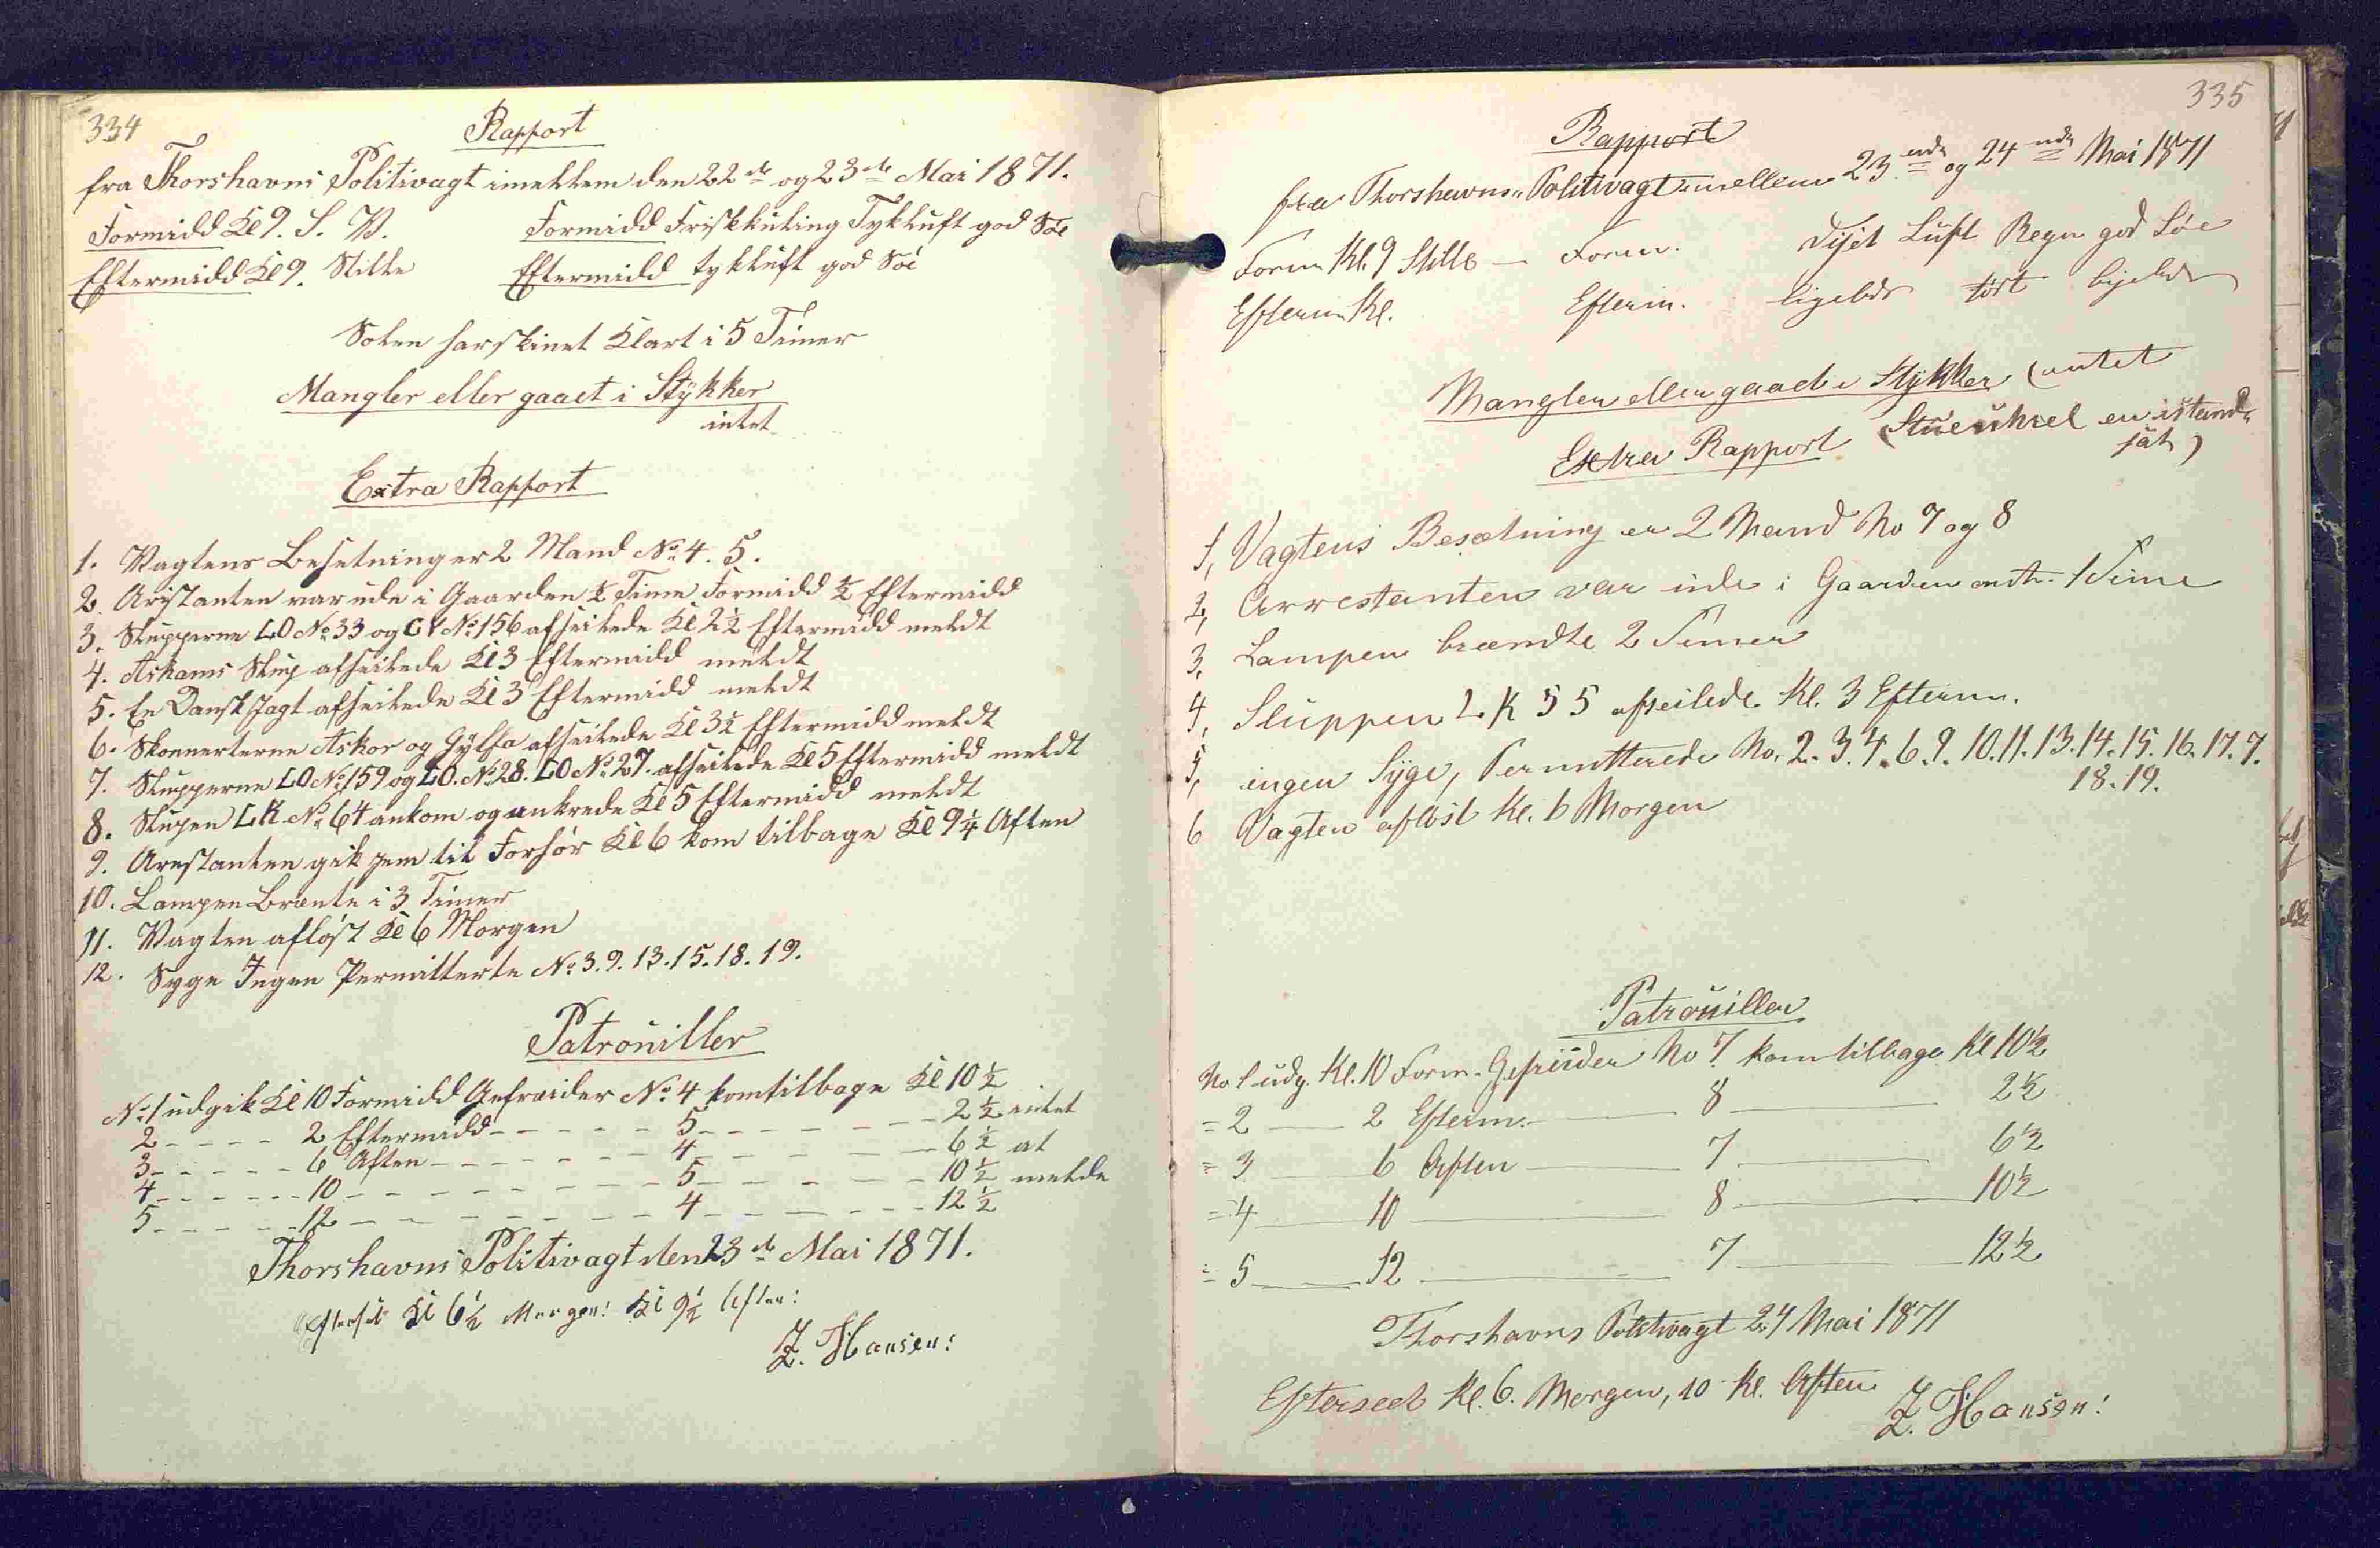 334
Rapport
fra Thorshavns Politivagt imellem den 22de og 23de Mai 1871.
Formidd Kl 9. S. V. Formidd Friskkuling Tykluft god Söe
Eftermidd Kl 9. Stille Eftermidd tykluft god Söe
Solen har skinet Klart i 5 Timer
Mangler eller gaaet i Stykker
intet
Extra Rapport
1. Vagtens Besetning er 2 Mand No 4. 5.
2. Aristanten var ude i Gaarden ½ Time Formidd ½ Eftermidd
3. Slupperne LO No 33 og GY No 156 afseilede Kl 2½ Eftermidd meldt
4. Askams Slup afseilede Kl 3 Eftermidd meldt
5. En Dansk Jagt afseilede Kl 3 Eftermidd meldt
6. Skonnerterne Askor og Gylfa afseilede Kl 3½ Eftermidd meldt
7. Slupperne LO No 159 og LO. No 28. LO No 27. afseilede Kl 5 Eftermidd meldt
8. Slupen LK No 64 ankom og ankrede Kl 5 Eftermidd meldt
9. Arestanten gik hem til Forhör Kl 6 kom tilbage Kl 9¼ Aften
10. Lampen Brænte i 3 Timer
11. Vagten aflöst Kl 6 Morgen
12. Syge Ingen Permitterte No 3. 9. 13. 15. 18. 19.
Patrouiller
No 1 udgik Kl 10 Formidd Gefreider No 4 kom tilbage Kl 10½
2 - - - - 2 Eftermidd - - - - - 5 - - - - - - - 2½ intet
3 - - - - - 6 Aften - - - - - - 4 - - - - - - 6½ at
4 - - - - - - 10 - - - - - - - - 5 - - - - - 10½ melde
5 - - - - - 12 - - - - - - - - 4 - - - - - - - 12½
Thorshavns Politivagt den 23de Mai 1871.
Efterset Kl 6½ Morgen! Kl 9½ Aften:
Z. Hansen:
335
Rapport
fra Thorshavns Politivagt imellem 23.nde og 24nde Mai 1871
Form Kl. 9 Stille — Form. Luft Regn god Söe
Efterm Kl. Efterm. ligeledes
Mangler eller gaaet i Stykker (intet
Extra Rapport
1, Vagtens Besætning er 2 Mand No 7 og 8
2, Arrestanten var ude i Gaarden omtr. 1 Time
3, Lampen brændte 2 Timer
4, Sluppen LK 55 afseilede Kl. 3 Efterm.
5, ingen Syge, Permitterede No. 2. 3. 4. 6. 9. 10. 11. 13. 14. 15. 16. 17. 7.
18. 19.
6 Vagten aflöst Kl. 6 Morgen
Patrouiller
No 1 udg. Kl. 10 Form. Gefreider No 7 kom tilbage Kl 10½
= 2 — 2 Efterm. — 8 — 2½
= 3 — 6 Aften — 7 — 6½
= 4 — 10 — 8 — 10½
= 5 — 12 — 7 — 12½
Thorshavns Politivagt 24 Mai 1871
Efterseet Kl. 6. Morgen, 10 Kl. Aften
Z. Hansen!